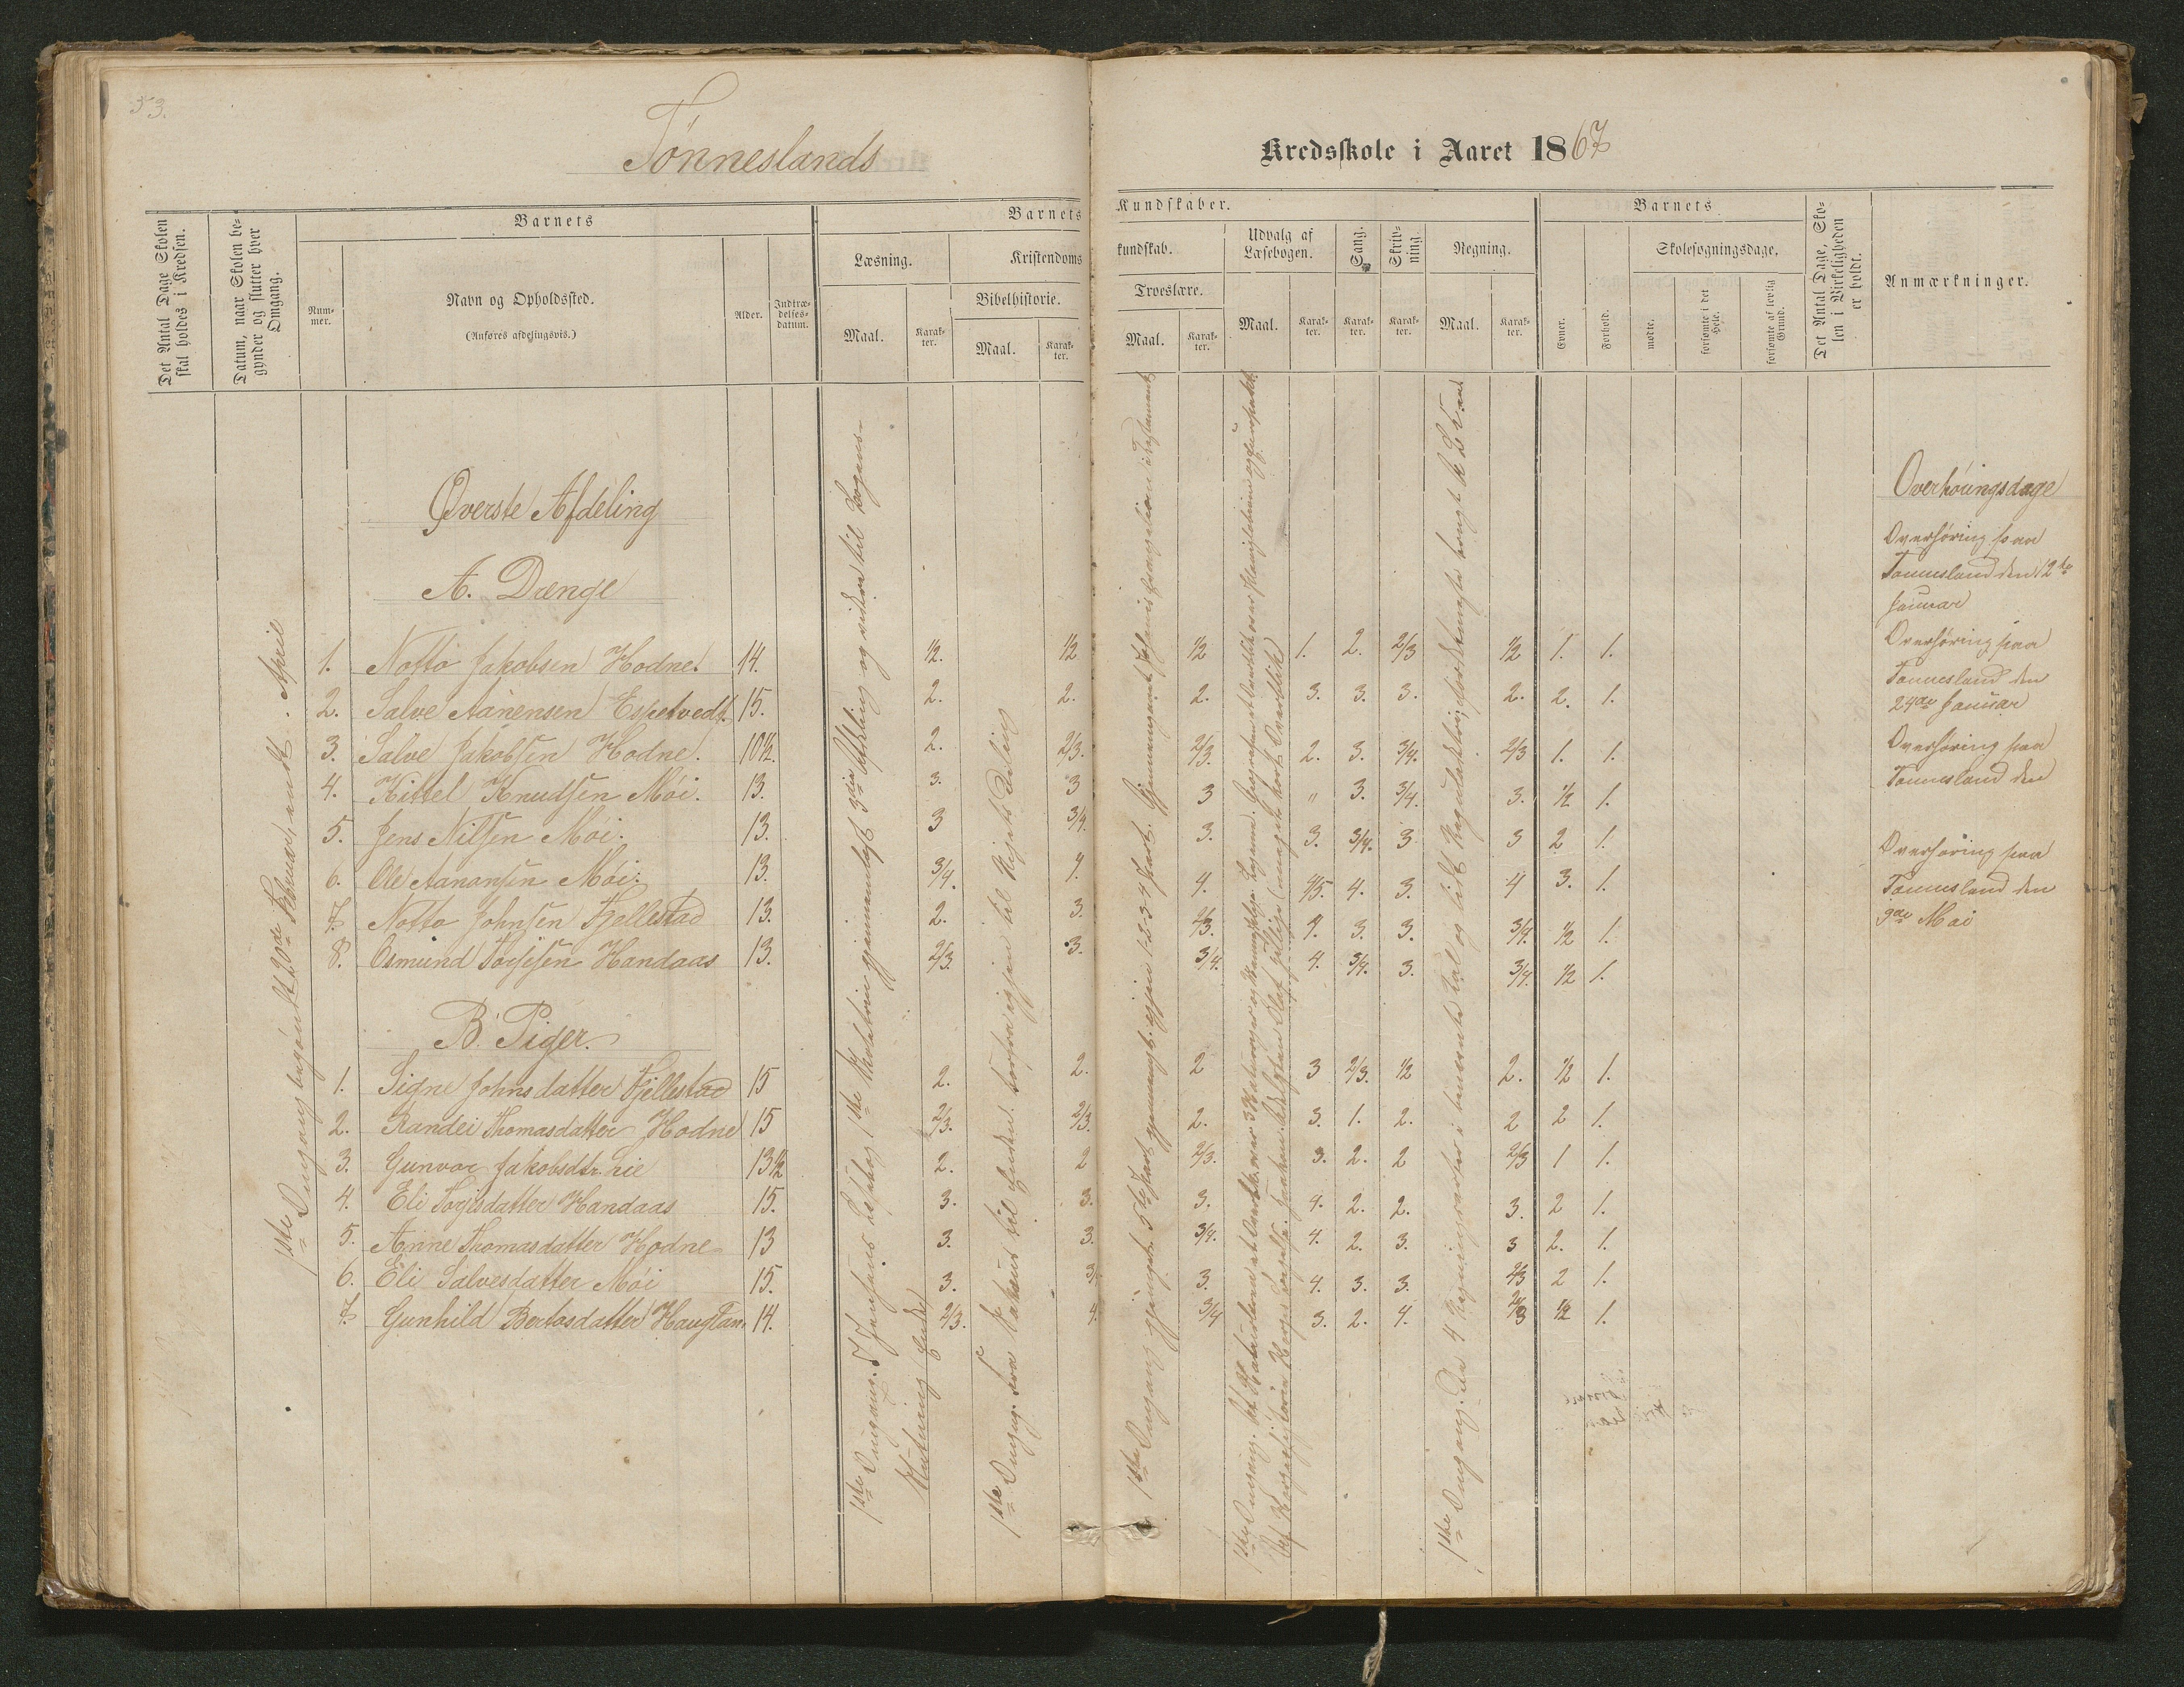 53.
Tønneslands
Kredsskole i Aaret 1867
Det Antal Dage Skolen skal holdes i Kredsen.
Datum, naar Skolen begynder og slutter hver Omgang.
Barnets
Nummer.
Navn og Opholdssted.
(Anføres afdelingsvis.)
Alder.
Indtrædelsesdatum.
Barnets Kundskaber.
Læsning.
Maal.
Karakter.
Kristendomskundskab.
Bibelhistorie.
Maal.
Karakter.
Troeslære.
Maal.
Karakter.
Udvalg af Læsebogen.
Maal.
Karakter.
Sang.
Karakter.
Skrivning.
Karakter.
Regning.
Maal.
Karakter.
Barnets
Evner.
Forhold.
Skolesøgningsdage.
mødte.
forsømte i det Hele.
forsømte af lovlig Grund.
Det Antal Dage, Skolen i Virkeligheden er holdt.
Anmærkninger.
Øverste Afdeling
A. Drenge
1. Notto Jakobsen Hodne. 14. 1/2. 1/2 1/2 1. 2. 2/3 1/2 1. 1.
2. Salve Aanensen Espetvedt. 15. 2. 2. 2. 3. 3. 3. 2. 2. 1.
3. Salve Jakobsen Hodne. 10 1/2. 2. 2/3. 2/3. 2. 3. 3/4. 2/3 1. 1.
4. Kittel Knudsen Möi. 13. 3. 3 3 " 3. 3/4. 3. 1/2 1.
5. Jens Nilsen Möi. 13. 3 3/4. 3. 3. 3/4. 3 3 2 1.
6. Ole Aanonsen Möi. 13. 3/4. 4. 4. 4/5. 4. 3. 4 3. 1.
7. Notto Johnsen Fjellestad 13. 2. 3. 2/3. 4. 3. 3. 3/4. 1/2 1.
8. Osmund Torjesen Handaas 13. 2/3. 3. 3/4. 4. 3/4. 3. 3/4. 1/2 1.
B. Piger.
1. Signe Johnsdatter Fjellestad 15 2. 2. 2 3 2/3. 1/2 2. 1/2 1.
2. Randei Thomasdatter Hodne 15 2/3. 2/3. 2. 3. 1. 2. 2 2 1.
3. Gunvor Jakobsdtr. Lie 13 1/2 2. 2 2/3. 3. 2. 2 2/3 1 1.
4. Eli Torjisdatter Handaas 15. 3. 3. 3. 4. 2. 2. 3. 2 1.
5. Anne Thomasdatter Hodne 13 3. 3. 3/4. 4. 2. 3. 3 2. 1.
6. Eli Salvesdatter Möi 15. 3. 3. 4. 3. 3. 2/3 2 1.
7. Gunhild Bertosdatter Haugland 14. 2/3. 4. 3/4 3. 2. 4. 2/3 1/2 1.
1ste Omgang begyndt 20de Februar, endt April
1ste Omgang.
1ste Omgang. Fra
1ste Omgang gjennemgaaet 5te Part,
1ste Omgang.
1ste Omgang. De 4 Regningsarter i benævnte Tal og lidt Reguladetri
Overhöringsdage
Overhøring paa
Tønnesland den 12te
Januar
Overhøring paa
Tønnesland den
24de Januar
Overhøring paa
Tønnesland den
Overhøring paa
Tønnesland den
9de Mai